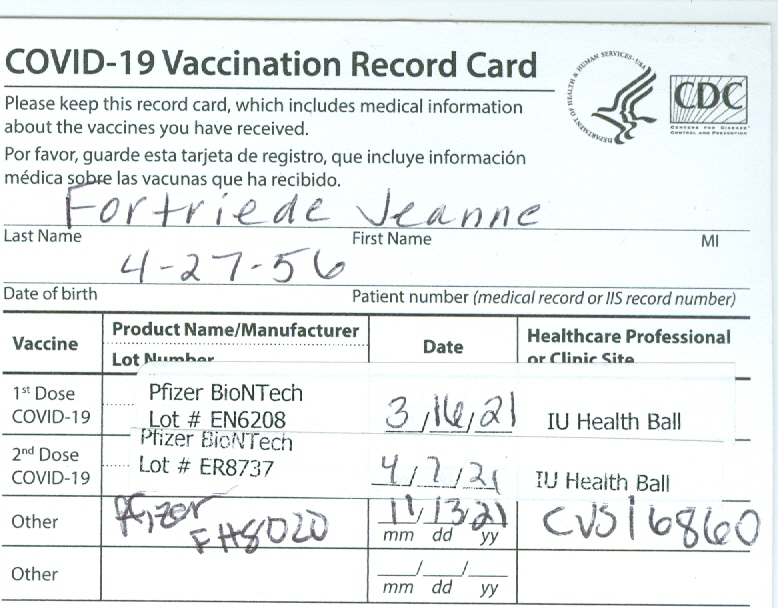 COVID-19 Vaccination Record Card
DEPARTMENT OF HEALTH & HUMAN SERVICES · USA
CDC
CENTERS FOR DISEASE CONTROL AND PREVENTION
Please keep this record card, which includes medical information
about the vaccines you have received.
Por favor, guarde esta tarjeta de registro, que incluye información
médica sobre las vacunas que ha recibido.
Fortriede Jeanne
Last Name First Name MI
4-27-56
Date of birth Patient number (medical record or IIS record number)
Vaccine Product Name/Manufacturer Date Healthcare Professional
Lot Number or Clinic Site
1st Dose Pfizer BioNTech
COVID-19 Lot # EN6208 3/16/21 IU Health Ball
Pfizer BioNTech
2nd Dose
COVID-19 Lot # ER8737 4/7/21 IU Health Ball
Other Pfizer 11/13/21 CVS16860
FH8020 mm dd yy
Other / /
mm dd yy